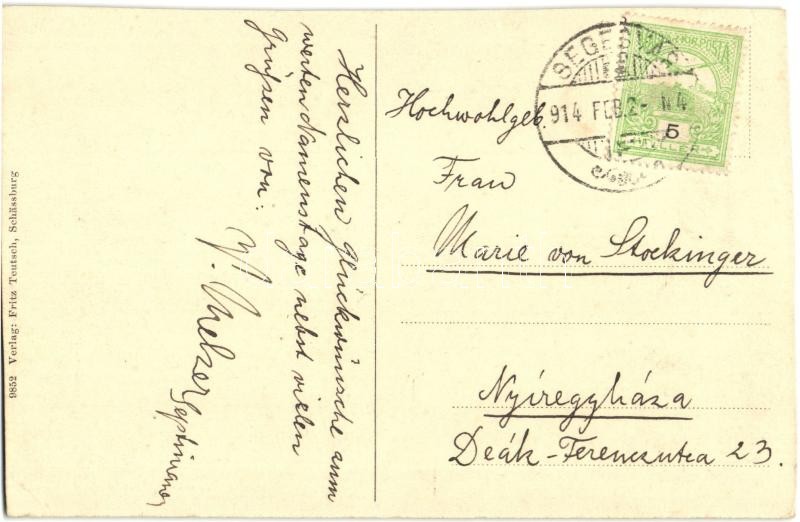 Herzlichen Glückwünsche zum
werten Namenstage nebst vielen
Grüßen von:
Melzer
9852 Verlag: Fritz Teutsch, Schässburg
SEGESVÁR
914 FEB. 2
MAGY. KIR. POSTA
5
FILLÉR
Hochwohlgeb.
Frau
Marie von Stockinger
Nyíregyháza
Deák-Ferenczutca 23.